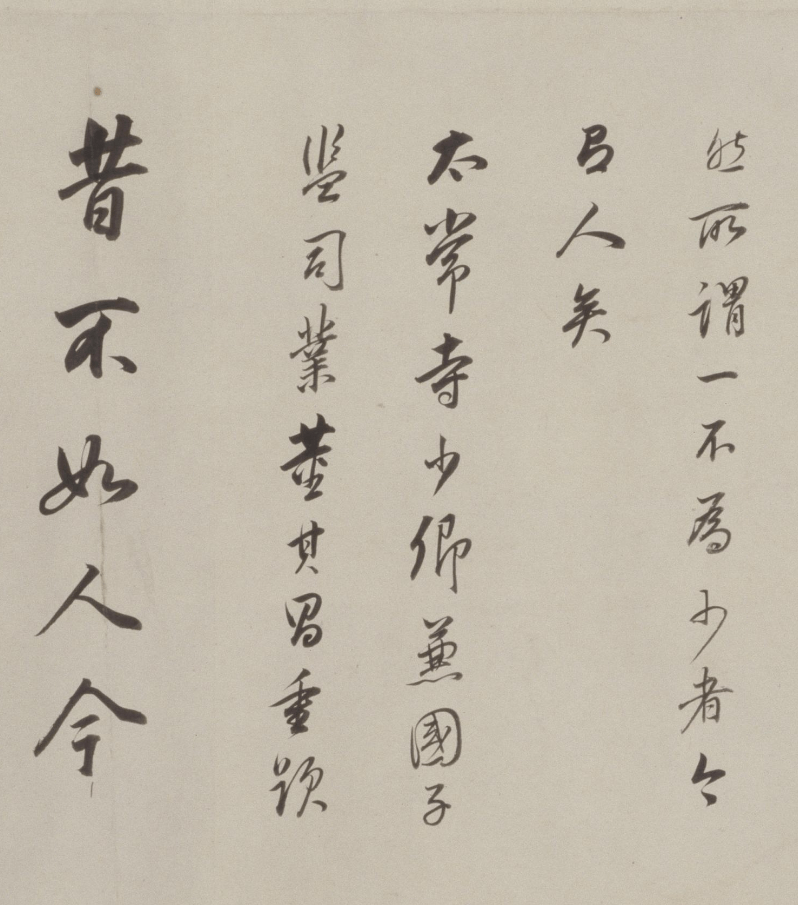 然所謂一不為少者今
人矣
太常寺少卿兼國子
監司業董其昌重題
昔不如人今